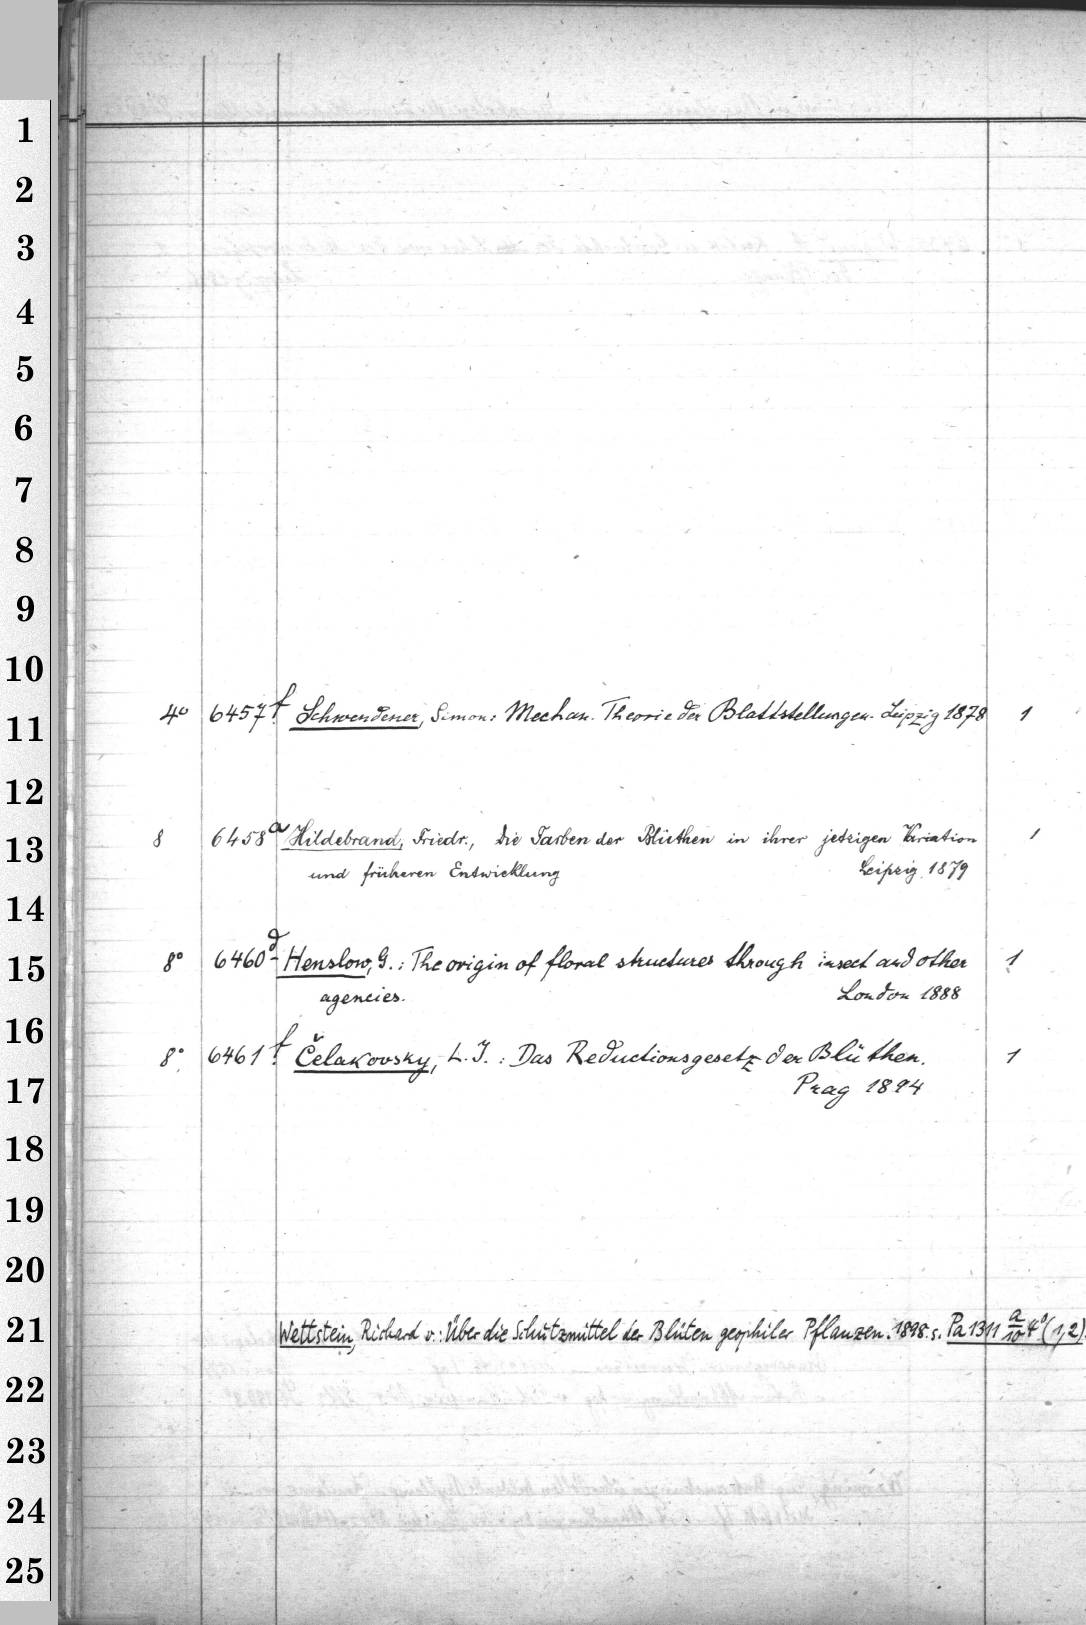 1
2
3
4
5
6
7
8
9
10
4° 6457 f Schwendener, Simon: Mechan. Theorie der Blattstellungen. Leipzig 1878 1
11
12
8 6458 a Hildebrand, Friedr., Die Farben der Blüthen in ihrer jetzigen Variation 1
13
und früheren Entwicklung Leipzig 1879
14
8° 6460 d Henslow, G.: The origin of floral structures through insect and other 1
15
agencies. London 1888
16
8° 6461 f Čelakovsky, L. J.: Das Reductionsgesetz der Blüthen. 1
17
Prag 1894
18
19
20
21
Wettstein, Richard v.: Über die Schutzmittel der Blüten geophiler Pflanzen. 1898. s. Pa 1311 a/10 4° (1,2)
22
23
24
25